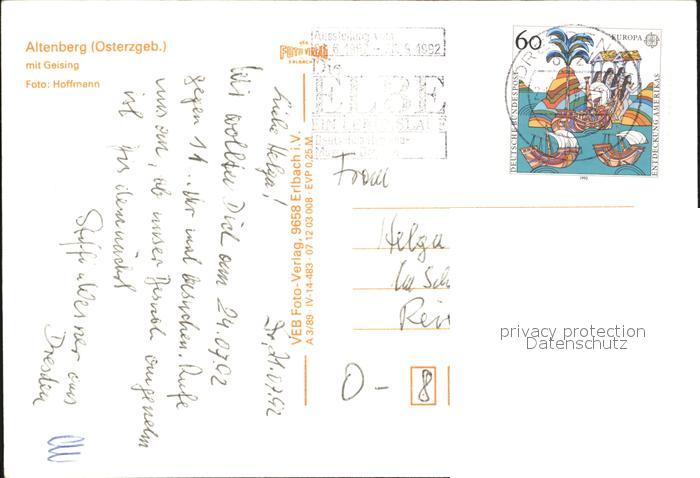 Altenberg (Osterzgeb.)
mit Geising
Foto: Hoffmann
Dr, 21.07.92
Liebe Helga!
Wir wollten Dich am 24.07.92
gegen 14.. Uhr mal besuchen. Rufe
uns an, ob unser Besuch angenehm
ist
Steffi u. Werner aus
Dresden
VEB Foto-Verlag, 9658 Erlbach i. V.
A 3/89 · IV-14-483 · 07 12 03 008 · EVP 0,25 M
FOTO VERLAG
ERLBACH
Ausstellung vom
1992
ELBE
60
EUROPA
DEUTSCHE BUNDESPOST
ENTDECKUNG AMERIKAS
1992
Frau
Helga
O-8
privacy protection
Datenschutz